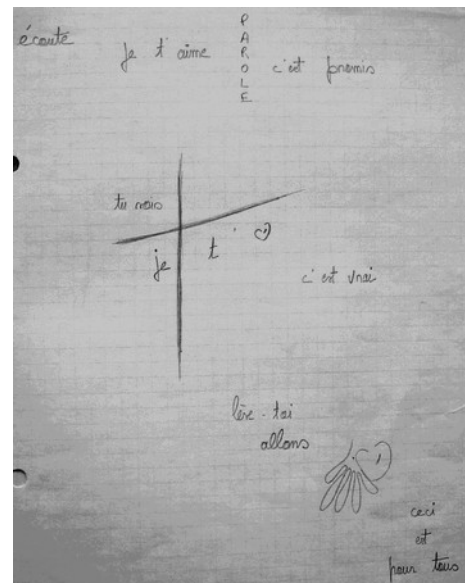 écoute
je t'aime
PAROLE
c'est promis
tu vois
je t'
c'est vrai
lève-toi
allons
ceci
est
pour tous